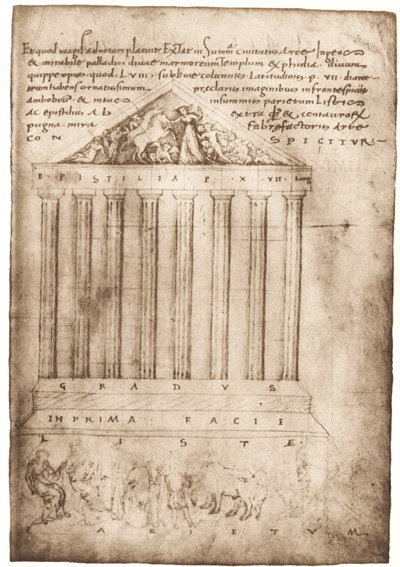 Et quod magis adnotari placuit Extat in Summa civitatis Arce Ingens
& mirabile palladis divae marmoreum Templum ex phidia. divum
quippe opus. quod LVIII. sublime columnis. Latitudinis p. VII. diame-
trum habens ornatissimum praeclaris imaginibus in frontespiciis
ambobus & intus in summis parietum Listis
ac epistiliis ab extra & centauror
pugna. mira fabrefactoris Arte
CON SPICITUR-
EPISTILIA P. XVII. Long
GRADVS
IN PRIMA FACIE
LISTE
ARIETVM